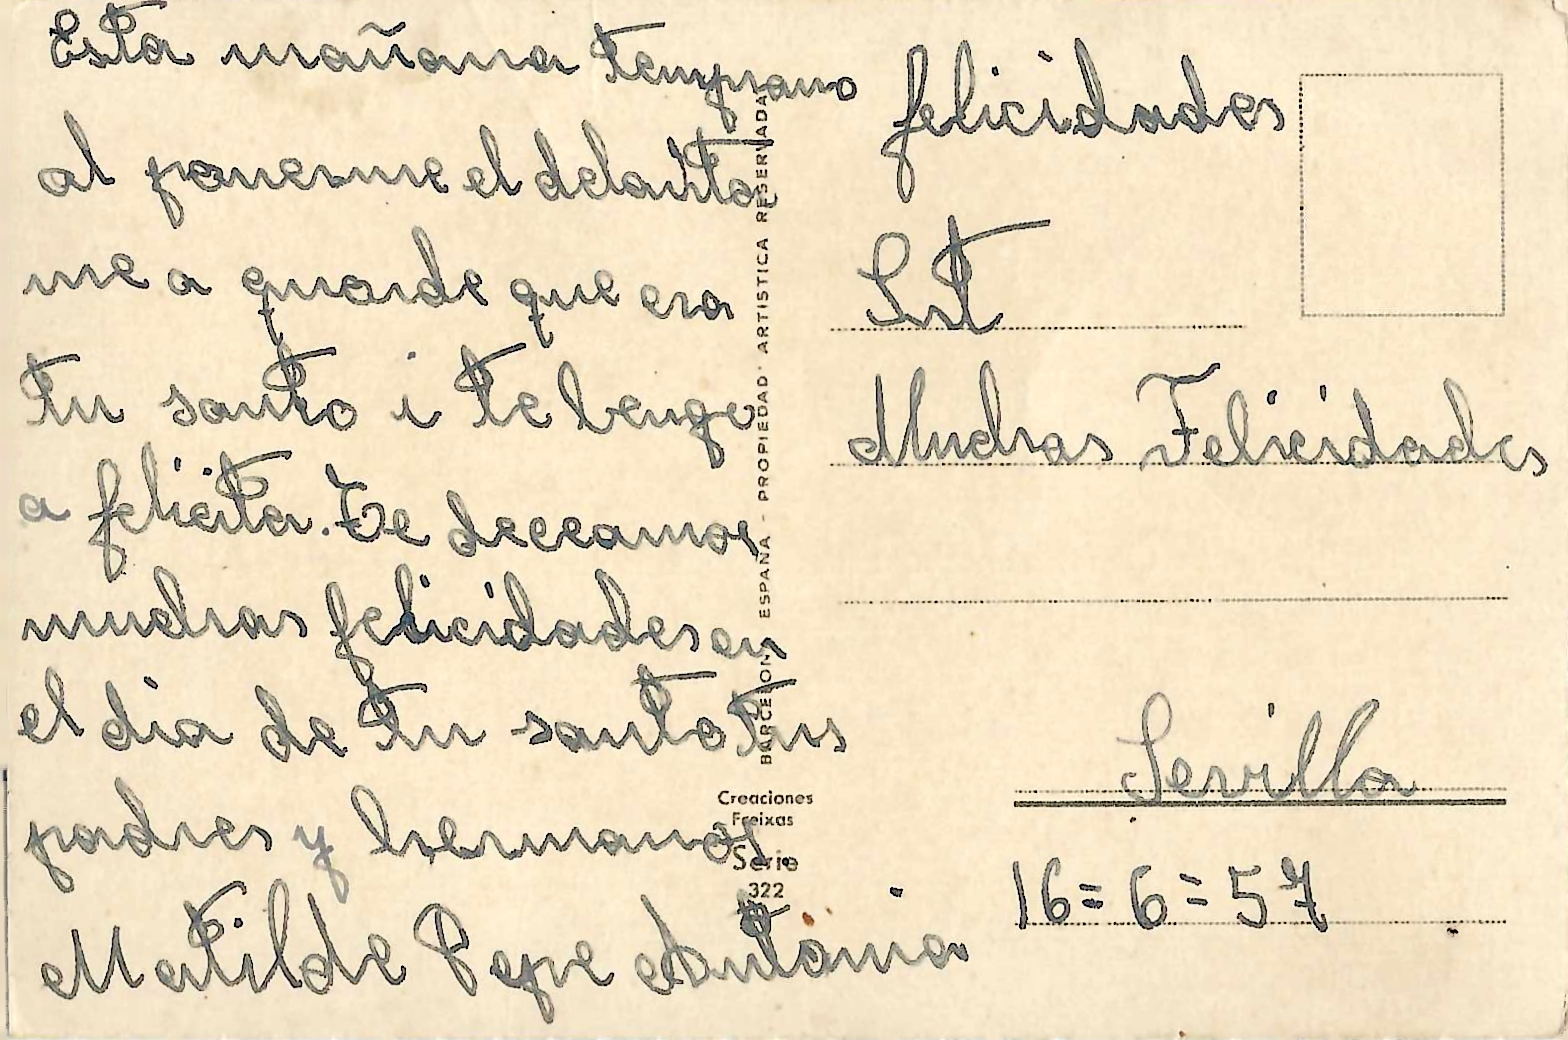 Esta mañana temprano
al ponerme el delanta
me a quarde que era
tu santo i te benge
a felicita. Te deceamos
muchas felicidades en
el dia de tu santo tus
padres y hermanos.
Matilde Pepe Antonia
BARCELONA - ESPAÑA - PROPIEDAD ARTISTICA RESERVADA
Creaciones
Freixas
Serie
322
felicidades
Srt
Muchas Felicidades
Sevilla
16=6=57